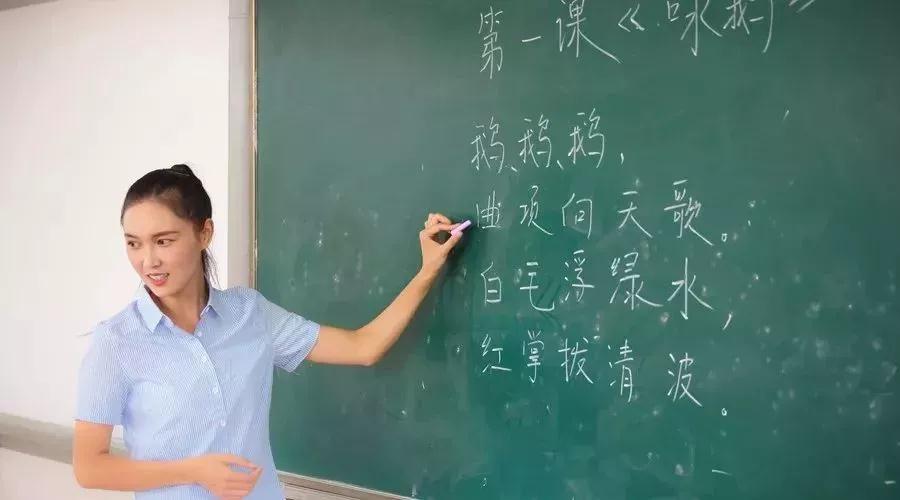 第一课《咏鹅》
鹅、鹅、鹅，
曲项向天歌。
白毛浮绿水，
红掌拨清波。